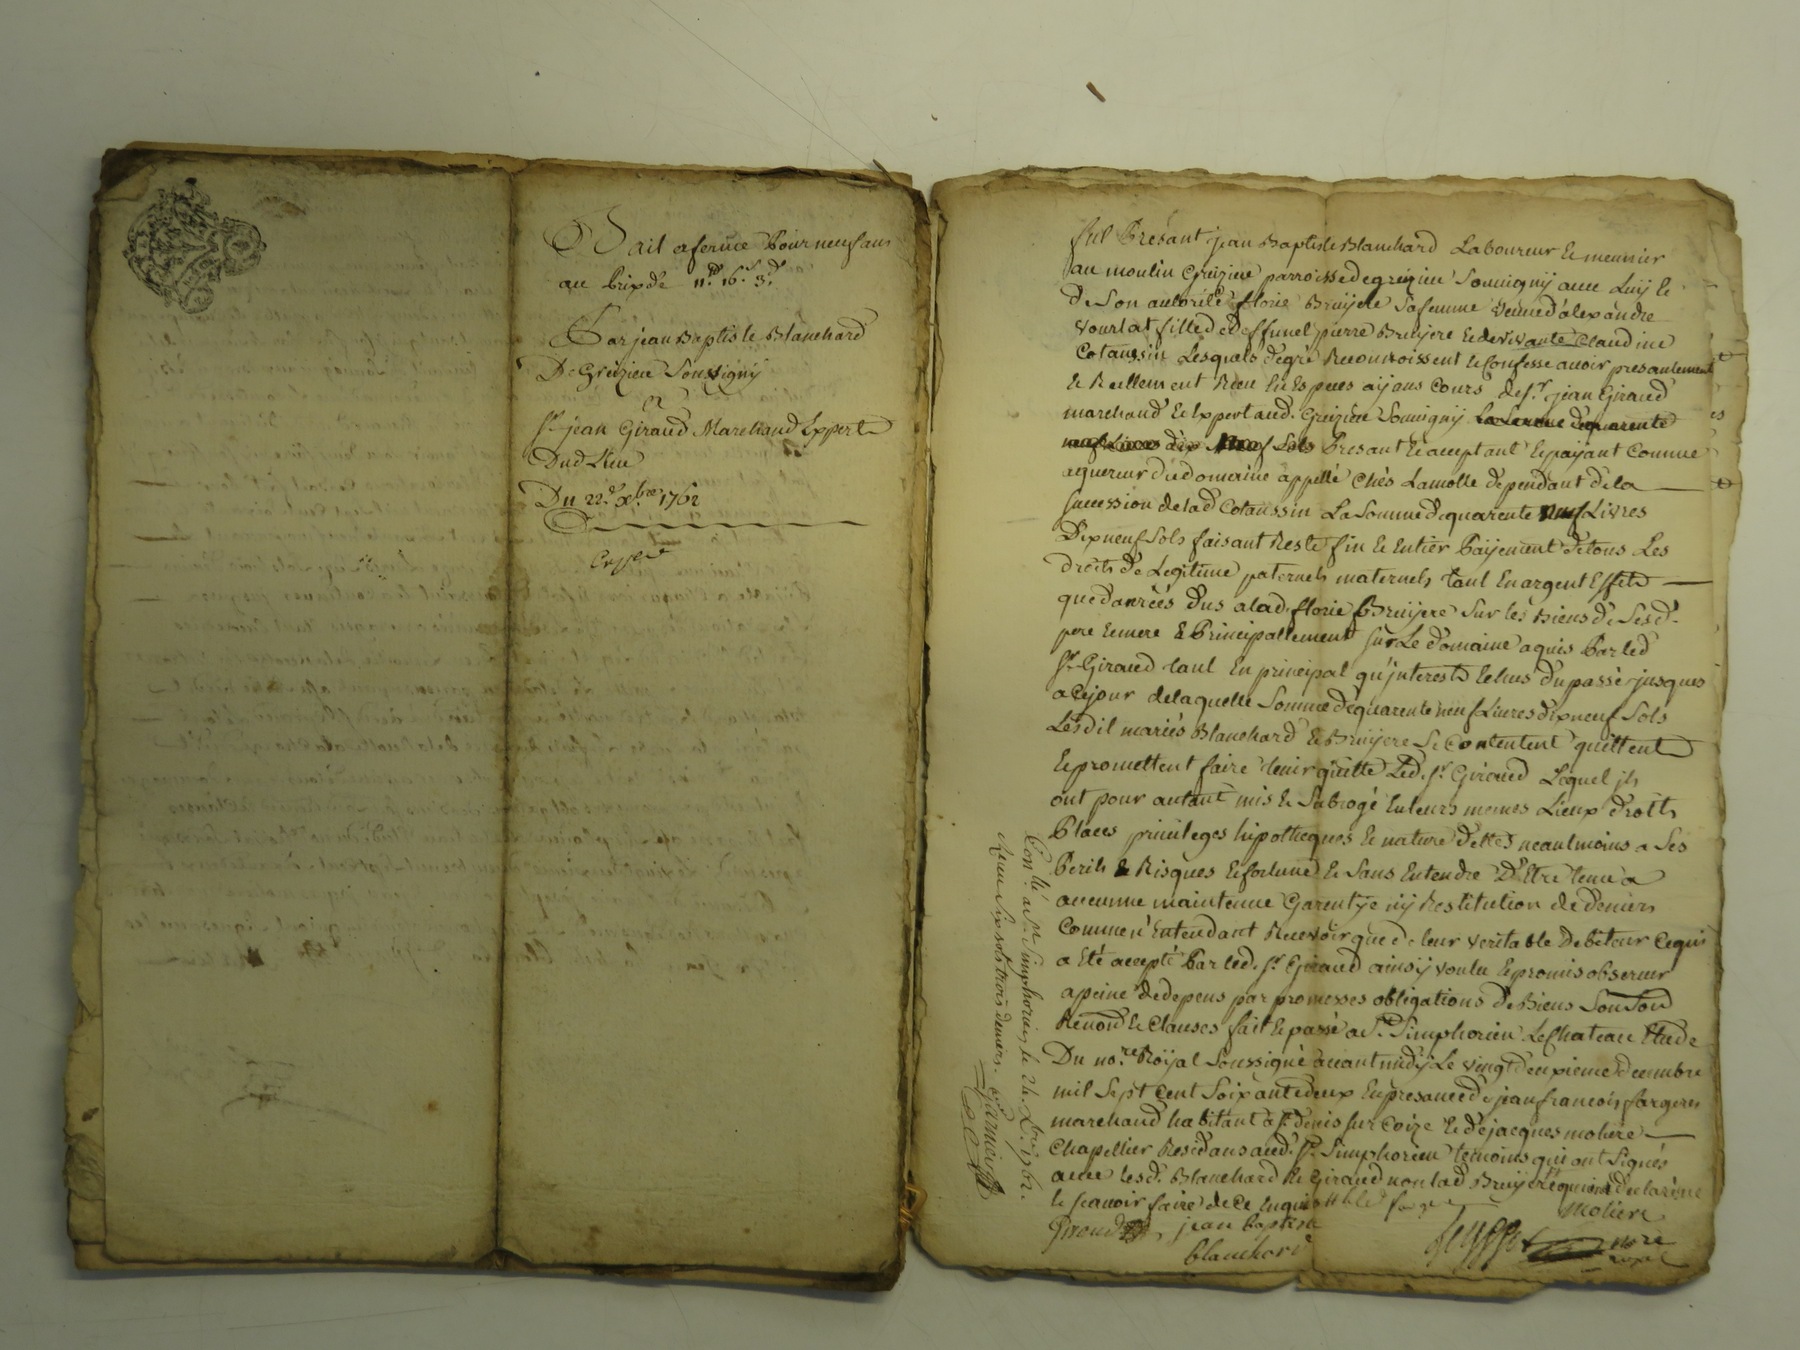 Bail a ferme Pour neuf ans
au prix de 11# 16s 3d
Par jean Baptiste Blanchard
De Greizieu Souvigny
Et
Sr jean Giraud Marchand Expert
Dud Lieu
Du 22e Xbre 1762
fut Présant jean Baptiste Blanchard Laboureur et meunier
au moulin Greizieu parroisse de greizieu Souvigny avec Luÿ et
de Son autorité florie Bruÿere Sa femme veuve d'alexandre
vourlat fille de deffunct pierre Bruÿere et de vivante Claudine
Cotaussin Lesquels de gré Reconnoissent et Confesse avoir presantement
et Reellement Receu En Especes aÿans Cours de Sr jean Giraud
marchand et Expert aud. Greizieu Souvigny La Somme de quarente
neuf Livres dix Neuf Sols Presant et aceptant et paÿant Comme
aquereur du domaine appellé Chès Lamotte dependant de la
succession de lad Cotaussin La Somme de quarente neuf Livres
Dix neuf Sols faisant Reste fin et Entier Paÿement de tous Les
droits de Legitime paternels maternels tant En argent Effets
que danrées dus a lad. florie Bruÿere Sur les Biens de Sesd.
pere et mere et Principallement Sur Le domaine aquis Par led
Sr Giraud tant En principal qu'jnterests Echus du passé jusques
a ce jour de laquelle Somme de quarente neuf Livres dix neuf Sols
Lesdit mariés Blanchard et Bruÿere Se Contentent quittent
et promettent faire tenir quitte Led. Sr Giraud Lequel jls
ont pour autant mis et Subrogé En leurs memes Lieux droits
Places privileges hipotheques et nature dettes neantmoins a Ses
Perils et Risques et fortune et Sans Entendre D'Etre tenu a
aucunne maintenue Garentÿe nÿ Restitution de deniers
Comme n'Entendant Recevoir que de leur veritable Debiteur Ce qui
a Eté accepté Par led. Sr Giraud ainsÿ voulu et promis observer
a peine de depens par promesses obligations de Biens Son Son
Renond et Clauses fait et passé a St Simphorien Le Chateau Etude
Du nore Roÿal Soussigné avant midÿ Le vingt deuxieme decembre
mil Sept Cent Soixante deux En presance de jean francois fargeres
marchand habitant a St denis Sur Coize et de jacques moliere
Chapellier Residans aud. St Simphorien temoins qui ont Signés
avec lesd. Blanchard et Giraud non lad Bruÿere qui a declaré ne
le scavoir faire de ce Enquise
moliere
Giroud jean baptiste
blanchard
nre
royal
Conllé a St Simphorien le 24 Xbre 1762.
Recu Six sols trois deniers.